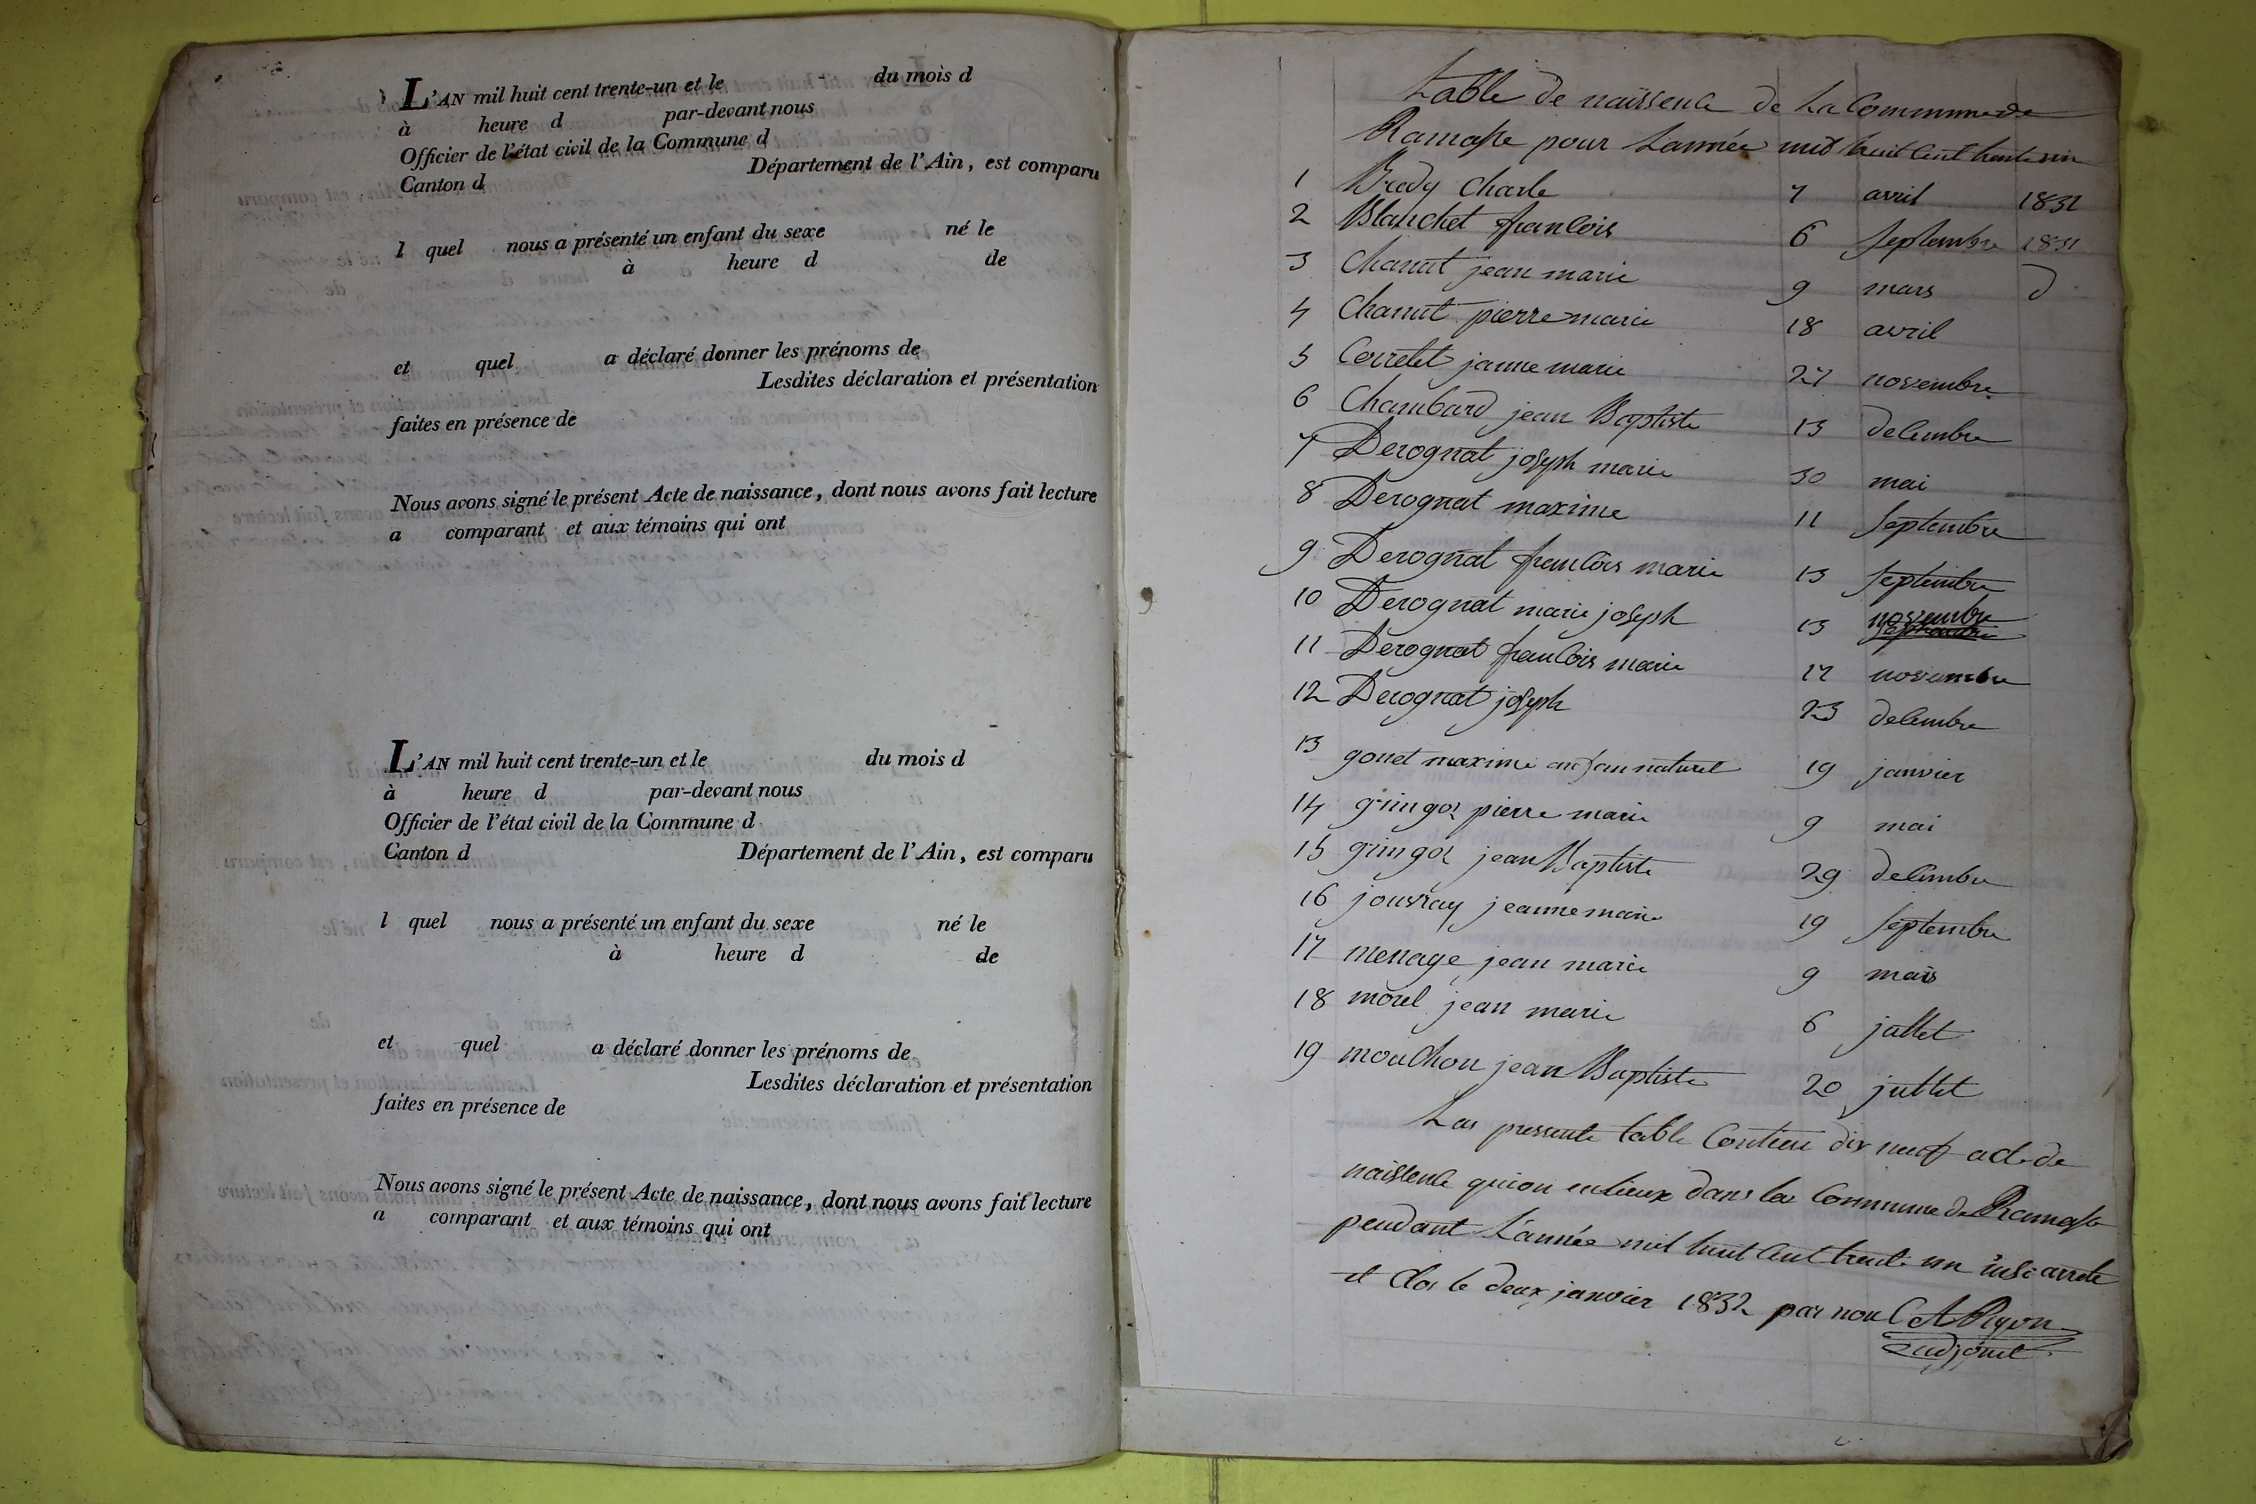 L'AN mil huit cent trente-un et le du mois d
à heure d par-devant nous
Officier de l'état civil de la Commune d
Canton d Département de l'Ain, est comparu
l quel nous a présenté un enfant du sexe né le
à heure d de
et quel a déclaré donner les prénoms de
Lesdites déclaration et présentation
faites en présence de
Nous avons signé le présent Acte de naissance, dont nous avons fait lecture
a comparant et aux témoins qui ont
L'AN mil huit cent trente-un et le du mois d
à heure d par-devant nous
Officier de l'état civil de la Commune d
Canton d Département de l'Ain, est comparu
l quel nous a présenté un enfant du sexe né le
à heure d de
et quel a déclaré donner les prénoms de
Lesdites déclaration et présentation
faites en présence de
Nous avons signé le présent Acte de naissance, dont nous avons fait lecture
a comparant et aux témoins qui ont
table de naissence de La Commune de
Ramasse pour Lannée mil huit cent trente un
1 Bredy Charle 7 avril 1831
2 Blanchet francois 6 septembre 1831
3 Chanut jean marie 9 mars d
4 Chanut pierre marie 18 avril
5 jeanne marie 27 novembre
6 Chambard jean Baptiste 13 decembre
7 Derognat joseph marie 30 mai
8 Derognat maxime 11 septembre
9 Derognat francois marie 13 septembre
10 Derognat marie joseph 13 novembre
11 Derognat francois marie 17 novembre
12 Derognat joseph 23 decembre
13 gouet maxime enfan naturel 19 janvier
14 pierre marie 9 mai
15 jean Baptiste 29 decembre
16 jouvray jeanne marie 19 septembre
17 menage jean marie 9 mars
18 morel jean marie 6 jullet
19 mouchon jean Baptiste 20 jullet
Las pressente table Contien dix neuf acte de
naissence quion enlieux dans la Commune de Ramasse
pendant L'année mil huit cent trente un arrete
et clos le deux janvier 1832 par nou
adjouet